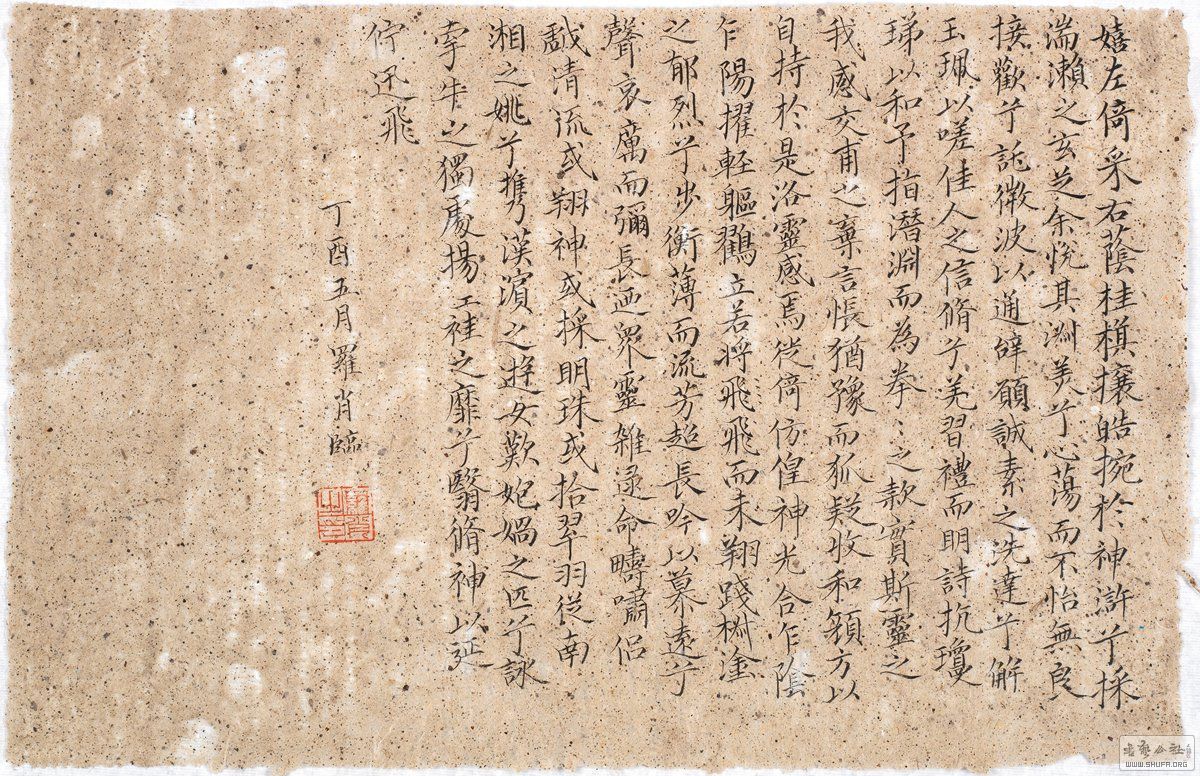 嬉左倚采右蔭桂旗攘皓捥於神滸兮採
湍瀨之玄芝余悅其淑美兮心蕩而不怡無良
接歡兮託微波以通辭願誠素之洗達兮解
玉珮以嗟佳人之信脩兮羌習禮而明詩抗瓊
珶以和予指潛淵而為拳〻之款實斯靈之
我感交甫之棄言悵猶豫而狐疑收和顏方以
自持於是洛靈感焉徙倚仿偟神光合乍陰
乍陽擢輕軀鶴立若將飛飛而未翔踐椒塗
之郁烈兮步衡薄而流芳超長吟以慕遠兮
聲哀厲而彌長迺眾靈雜遝命疇嘯侶
戲清流或翔神或採明珠或拾翠羽從南
湘之姚兮攜漢濱之遊女歎妃媧之匹兮詠
牽牛之獨處揚袿之靡兮翳脩神以延
佇迅飛
丁酉五月羅肖臨
WWW.SHUFA.ORG